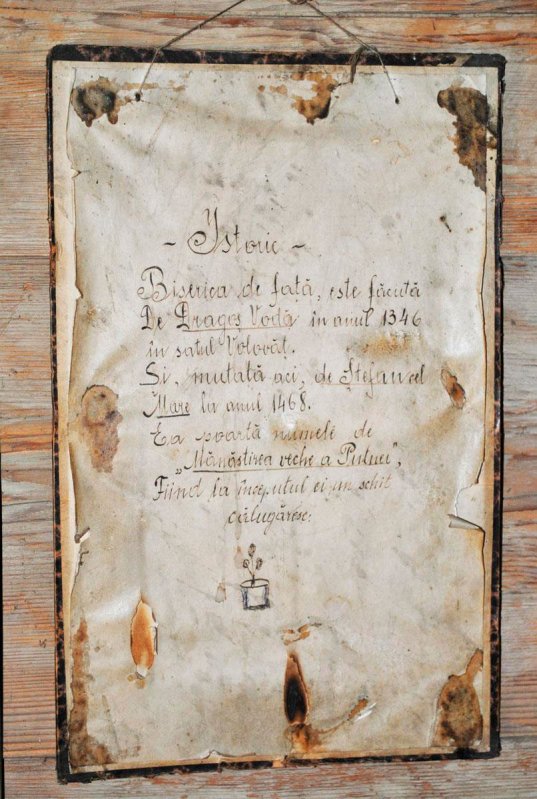 - Istoric -
Biserica de fată, este făcută
De Dragoș Vodă în anul 1346
în satul Volovăt.
Si, mutată aci, de Ștefan cel
Mare la anul 1468.
Ea poartă numele de
„Mănăstirea veche a Putnei",
Fiind la începutul ei un schit
călugăresc.